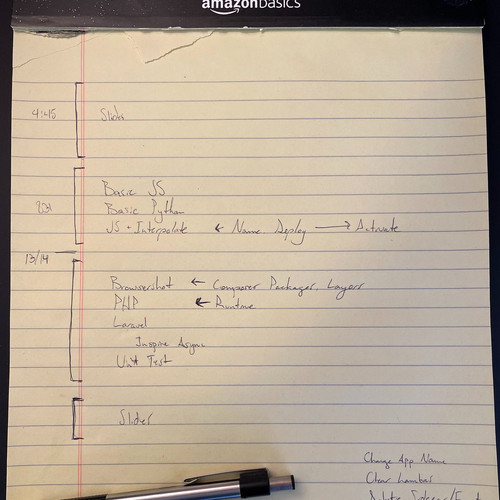 amazonbasics
4:45
Slides
Basic JS
Basic Python
JS + Interpolate ← Name Deploy → Activate
13/14
Browsershot ← Composer Packages, Layers
PHP ← Runtime
Laravel
Inspire Async
Unit Test
Slides
Change App Name
Clear Lambas
Delete